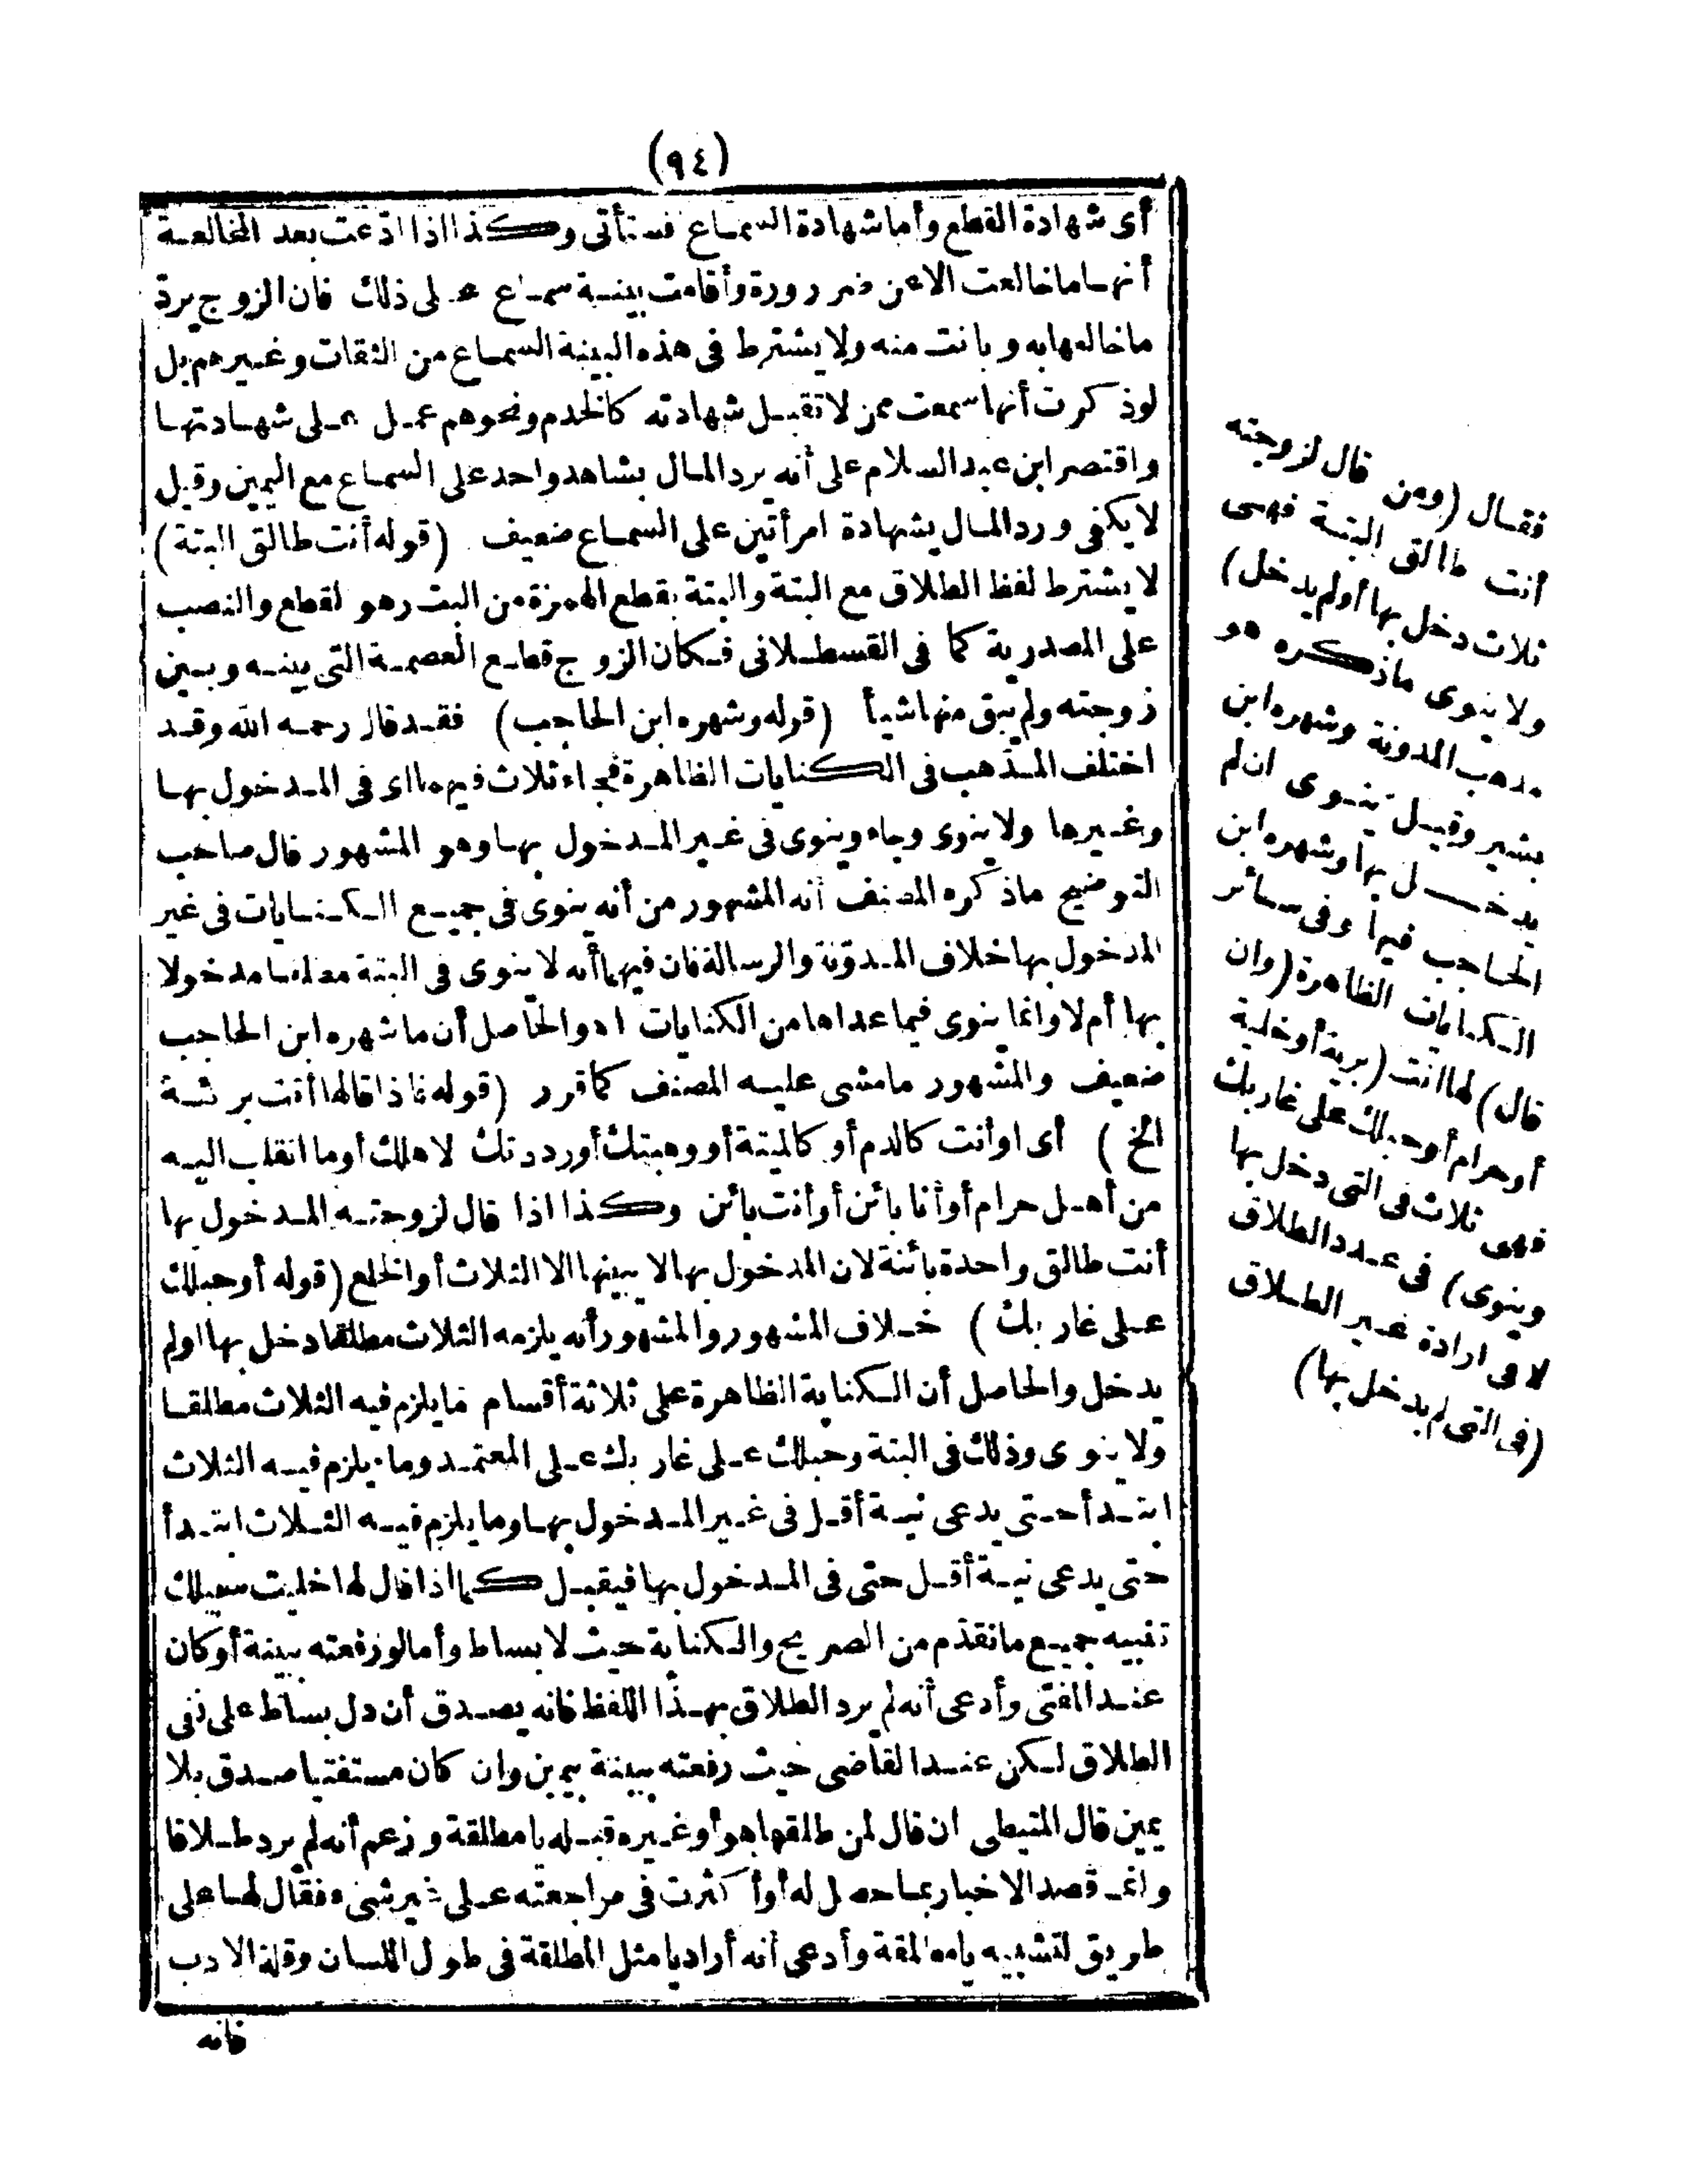 (٩٤)
أى شهادة القطع وأما شهادة السماع فستأتى وكذا اذا ادّعت بعد المخالعة
أنها ما خالعت الا عن ضرورة وأقامت بينة سماع على ذلك فان الزوج يردّ
ما خالعها به وبانت منه ولا يشترط فى هذه البينة السماع من الثقات وغيرهم بل
لو ذكرت أنها سمعت ممن لا تقبل شهادته كالخدم ونحوهم عمل على شهادتها
واقتصر ابن عبد السلام على أنه يرد المال بشاهد واحد على السماع مع اليمين وقيل
لا يكفى ورد المال بشهادة امرأتين على السماع ضعيف (قوله أنت طالق البتة)
لا يشترط لفظ الطلاق مع البتة والبتة بقطع الهمزة من البت وهو لقطع والنصب
على المصدرية كما فى القسطلانى فكان الزوج قطع العصمة التى بينه وبين
زوجته ولم يبق منها شيأ (قوله وشهره ابن الحاجب) فقد قال رحمه الله وقد
اختلف المذهب فى الكنايات الظاهرة فجاء ثلاث فيهما اى فى المدخول بها
وغيرها ولا ينوى وجاء وينوى فى غير المدخول بها وهو المشهور قال صاحب
التوضيح ما ذكره المصنف أنه المشهور من أنه ينوى فى جميع الكنايات فى غير
المدخول بها خلاف المدوّنة والرسالة فان فيهما أنه لا ينوى فى البتة مطلقا مدخولا
بها أم لا وانما ينوى فيما عداها من الكنايات اه والحاصل أن ما شهره ابن الحاجب
ضعيف والمشهور ما مشى عليه المصنف كما قرر (قوله فاذا قالها أنت برئية
الخ) أى او أنت كالدم أو كالميتة أو وهبتك أو رددتك لاهلك أو ما انقلب اليه
من أهل حرام أو أنا بائن أو أنت بائن وكذا اذا قال لزوجته المدخول بها
أنت طالق واحدة بائنة لان المدخول بها لا يبينها الا الثلاث أو الخلع (قوله أو حبلك
على غاربك) خلاف المشهور والمشهور أنه يلزمه الثلاث مطلقا دخل بها اولم
يدخل والحاصل أن الكناية الظاهرة على ثلاثة أقسام ما يلزم فيه الثلاث مطلقا
ولا ينوى وذلك فى البتة وحبلك على غاربك على المعتمد وما يلزم فيه الثلاث
ابتدأ حتى يدعى نية أقل فى غير المدخول بها وما يلزم فيه الثلاث ابتدأ
حتى يدعى نية أقل حتى فى المدخول بها فيقبل كما اذا قال لها خليت سبيلك
تنبيه جميع ما تقدّم من الصريح والكناية حيث لا بساط وأما لو رفعته بينة أو كان
عند المفتى وأدعى أنه لم يرد الطلاق بهذا اللفظ فانه يصدق أن دل بساط على نفى
الطلاق لكن عند القاضى حيث رفعته ببينة بيمين وان كان مستفتيا صدق بلا
يمين قال المتيطى ان قال لمن طلقها هو أو غيره قبله يا مطلقة وزعم أنه لم يرد طلاقا
وانما قصد الاخبار بما حصل له أو أكثرت فى مراجعته على غير شىء فقال لها على
طريق لتشبيه يا مطلقة وأدعى أنه أراد يا مثل المطلقة فى طول اللسان وقلة الادب
فانه
فقال (ومن قال لزوجته
أنت طالق البتة فهى
ثلاث دخل بها أو لم يدخل)
ولا ينوى ما ذكره هو
مذهب المدونة وشهره ابن
بشير وقيل ينوى ان لم
يدخل بها وشهره ابن
الحاجب فيها وفى سائر
الكنايات الظاهرة (وان
قال) لها انت (برية أو خلية
أو حرام أو حبلك على غاربك
فهى ثلاث فى التى دخل بها
وينوى) فى عدد الطلاق
لا فى ارادة غير الطلاق
(فى التى لم يدخل بها)